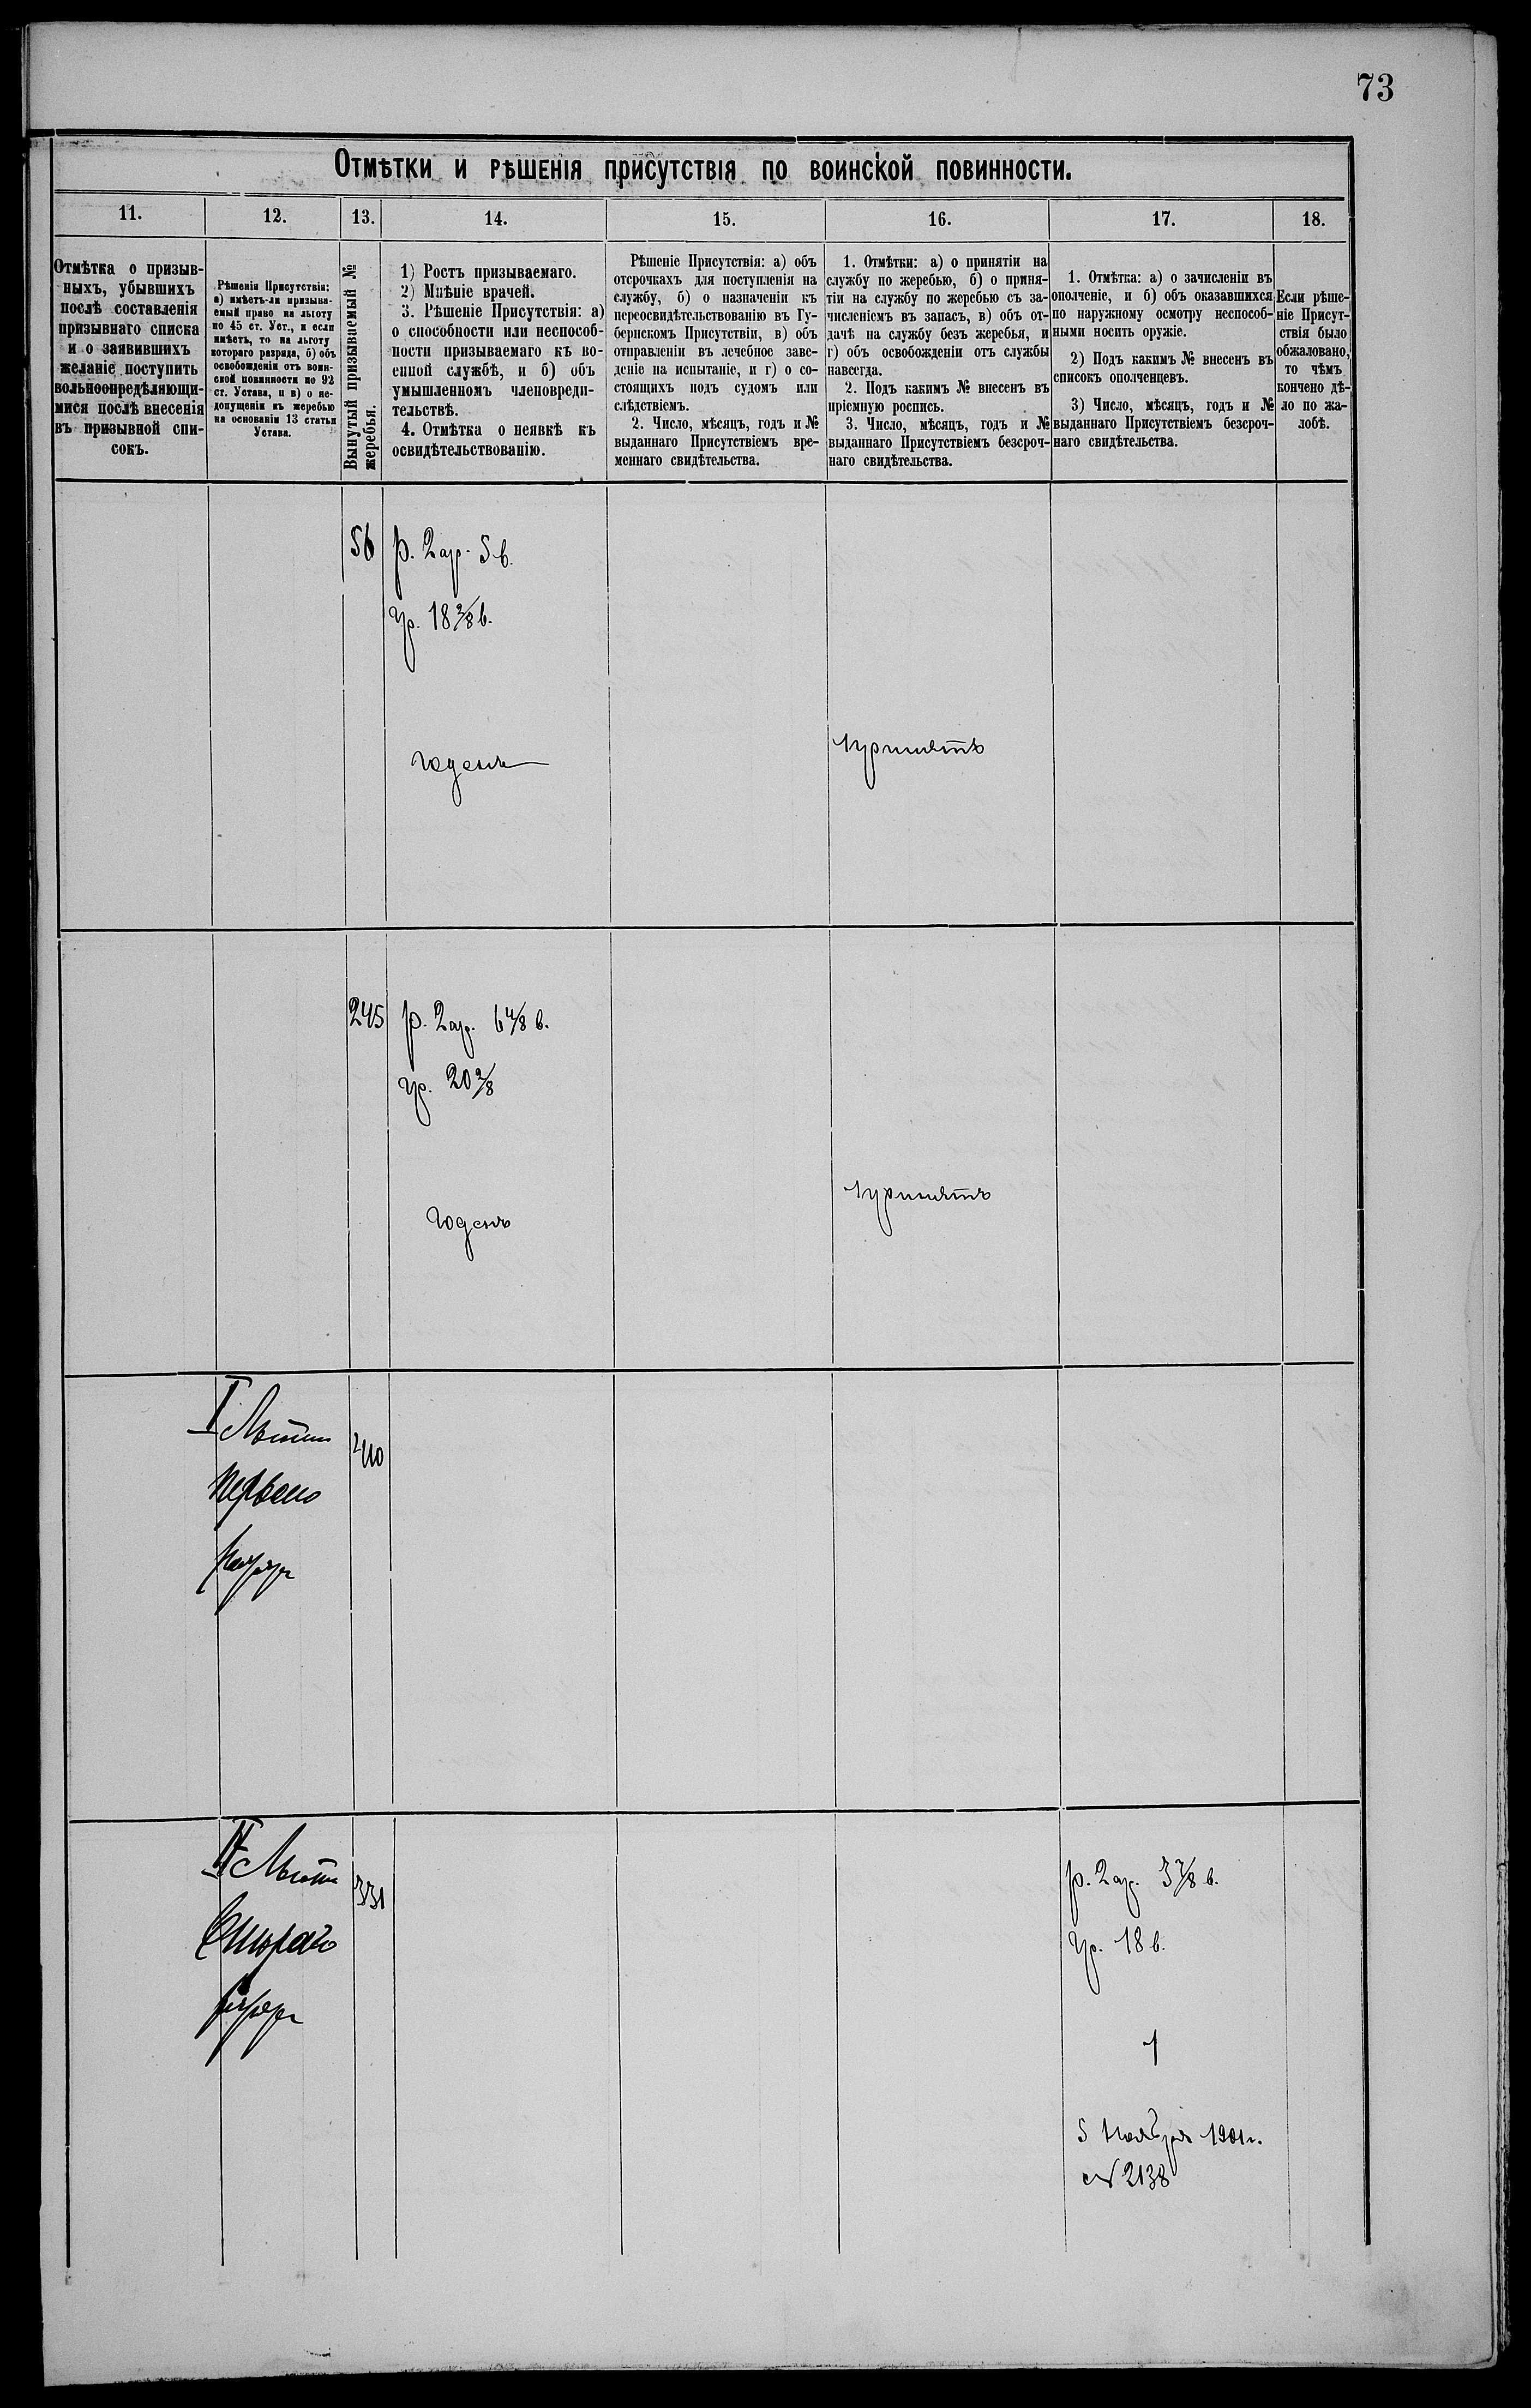 73
Отмѣтки и рѣшенія присутствія по воинской повинности.
11.
12.
13.
14.
15.
16.
17.
18.
Отмѣтка о призыв-
ныхъ, убывшихъ
послѣ составленія
призывнаго списка
и о заявившихъ
желаніе поступить
вольноопредѣляющи-
мися послѣ внесенія
въ призывной спи-
сокъ.
Рѣшенія Присутствія:
а) имѣетъ-ли призыва-
емый право на льготу
по 45 ст. Уст., и если
имѣетъ, то на льготу
котораго разряда, б) объ
освобожденіи отъ воин-
ской повинности по 92
ст. Устава, и в) о не-
допущеніи къ жеребью
на основаніи 13 статьи
Устава.
Вынутый призываемый №
жеребья.
1) Ростъ призываемаго.
2) Мнѣніе врачей.
3. Рѣшеніе Присутствія: а)
о способности или неспособ-
ности призываемаго къ во-
енной службѣ, и б) объ
умышленномъ членовреди-
тельствѣ.
4. Отмѣтка о неявкѣ къ
освидѣтельствованію.
Рѣшеніе Присутствія: а) объ
отсрочкахъ для поступленія на
службу, б) о назначеніи къ
переосвидѣтельствованію въ Гу-
бернскомъ Присутствіи, в) объ
отправленіи въ лечебное заве-
деніе на испытаніе, и г) о со-
стоящихъ подъ судомъ или
слѣдствіемъ.
2. Число, мѣсяцъ, годъ и №
выданнаго Присутствіемъ вре-
меннаго свидѣтельства.
1. Отмѣтки: а) о принятіи на
службу по жеребью, б) о приня-
тіи на службу по жеребью съ за-
численіемъ въ запасъ, в) объ от-
дачѣ на службу безъ жеребья, и
г) объ освобожденіи отъ службы
навсегда.
2. Подъ какимъ № внесенъ въ
пріемную роспись.
3. Число, мѣсяцъ, годъ и №
выданнаго Присутствіемъ безсроч-
наго свидѣтельства.
1. Отмѣтка: а) о зачисленіи въ
ополченіе, и б) объ оказавшихся
по наружному осмотру неспособ-
ными носить оружіе.
2) Подъ какимъ № внесенъ въ
списокъ ополченцевъ.
3) Число, мѣсяцъ, годъ и №
выданнаго Присутствіемъ безсроч-
наго свидѣтельства.
Если рѣше-
ніе Присут-
ствія было
обжаловано,
то чѣмъ
кончено дѣ-
ло по жа-
лобѣ.
56
р. 2 ар. 5 в.
гр. 18 2/8 в.
годенъ
принять
245
р. 2 ар. 6 4/8 в.
гр. 20 2/8
годенъ
принять
I Льгота
перваго
разряда
240
II Льгота
Второго
разряда
331
р. 2 ар. 3 7/8 в.
гр. 18 в.
1
5 Ноября 1901 г.
№ 2138